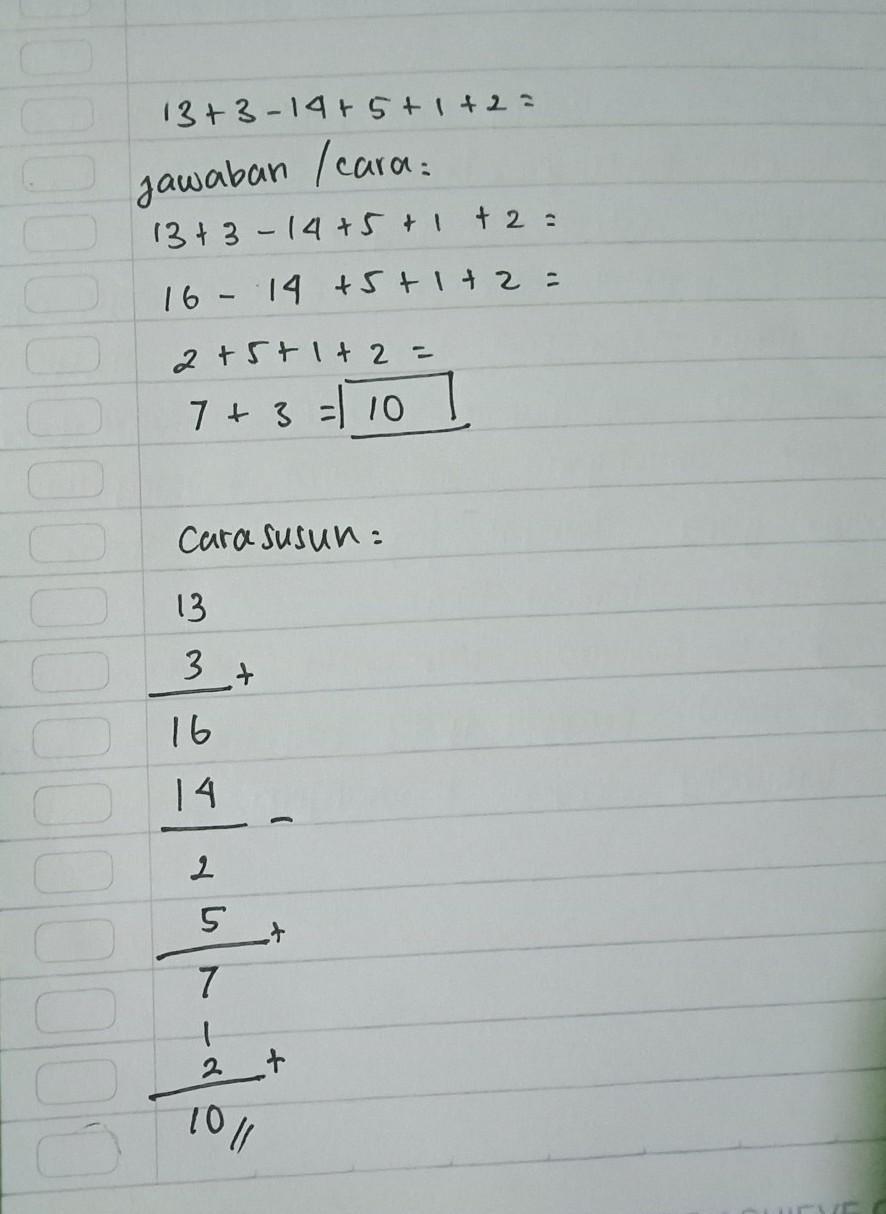 13 + 3 - 14 + 5 + 1 + 2 =
jawaban / cara :
13 + 3 - 14 + 5 + 1 + 2 =
16 - 14 + 5 + 1 + 2 =
2 + 5 + 1 + 2 =
7 + 3 = 10
Cara susun :
13
3 +
16
14 -
2
5 +
7
1
2 +
10 //